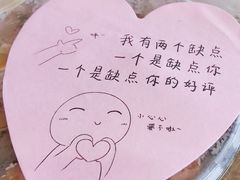 我有两个缺点
一个是缺点你
一个是缺点你的好评
小心心
要不啦~